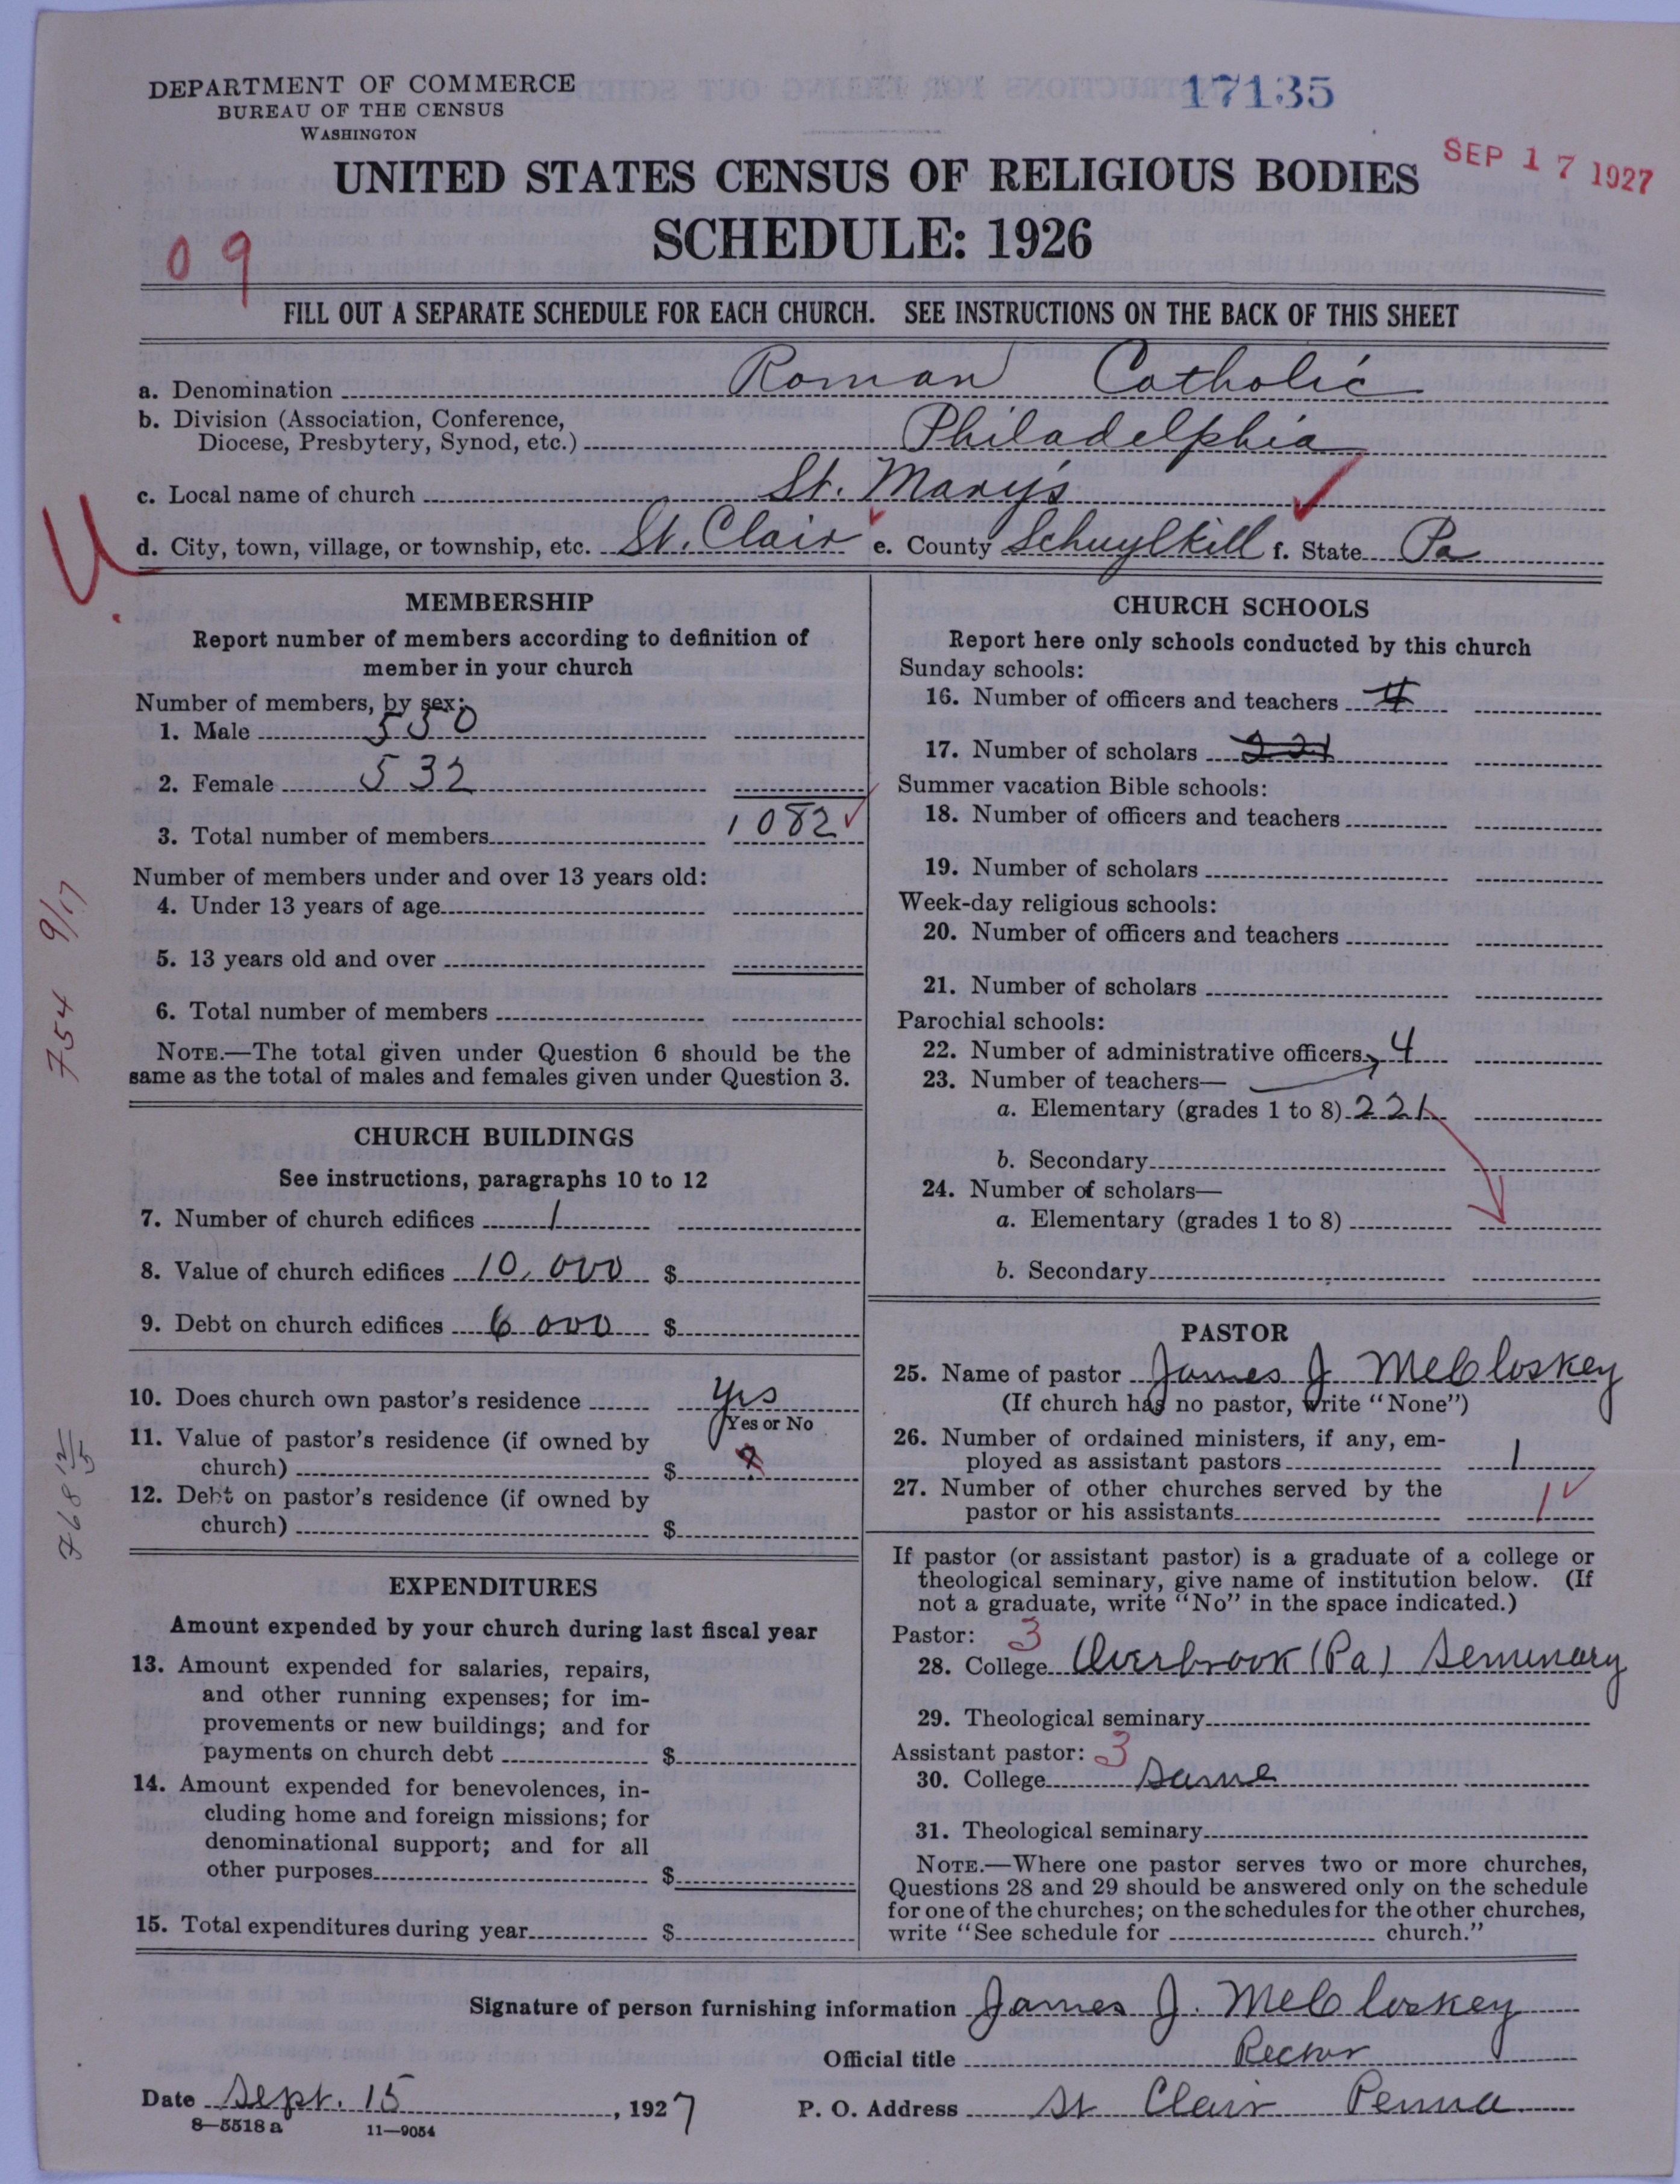 DEPARTMENT OF COMMERCE
BUREAU OF THE CENSUS
WASHINGTON
17135
SEP 17 1927
UNITED STATES CENSUS OF RELIGIOUS BODIES
SCHEDULE: 1926
09
FILL OUT A SEPARATE SCHEDULE FOR EACH CHURCH. SEE INSTRUCTIONS ON THE BACK OF THIS SHEET
a. Denomination Roman Catholic
b. Division (Association, Conference,
Diocese, Presbytery, Synod, etc.) Philadelphia
c. Local name of church St. Mary's
d. City, town, village, or township, etc. St. Clair e. County Schuylkill f. State Pa
U.
MEMBERSHIP
Report number of members according to definition of
member in your church
Number of members, by sex:
1. Male 550
2. Female 532
3. Total number of members 1082
Number of members under and over 13 years old:
4. Under 13 years of age
5. 13 years old and over
6. Total number of members
NOTE.—The total given under Question 6 should be the
same as the total of males and females given under Question 3.
754 9/17
CHURCH BUILDINGS
See instructions, paragraphs 10 to 12
7. Number of church edifices 1
8. Value of church edifices 10,000 $
9. Debt on church edifices 6000 $
10. Does church own pastor's residence yes
Yes or No
11. Value of pastor's residence (if owned by
church) $ ?
12. Debt on pastor's residence (if owned by
church) $
768 12/5
EXPENDITURES
Amount expended by your church during last fiscal year
13. Amount expended for salaries, repairs,
and other running expenses; for im-
provements or new buildings; and for
payments on church debt $
14. Amount expended for benevolences, in-
cluding home and foreign missions; for
denominational support; and for all
other purposes $
15. Total expenditures during year $
CHURCH SCHOOLS
Report here only schools conducted by this church
Sunday schools:
16. Number of officers and teachers 4
17. Number of scholars 221
Summer vacation Bible schools:
18. Number of officers and teachers
19. Number of scholars
Week-day religious schools:
20. Number of officers and teachers
21. Number of scholars
Parochial schools:
22. Number of administrative officers 4
23. Number of teachers—
a. Elementary (grades 1 to 8) 221
b. Secondary
24. Number of scholars—
a. Elementary (grades 1 to 8)
b. Secondary
PASTOR
25. Name of pastor James J McCloskey
(If church has no pastor, write "None")
26. Number of ordained ministers, if any, em-
ployed as assistant pastors 1
27. Number of other churches served by the
pastor or his assistants 1
If pastor (or assistant pastor) is a graduate of a college or
theological seminary, give name of institution below. (If
not a graduate, write "No" in the space indicated.)
Pastor: 3
28. College Overbrook (Pa) Seminary
29. Theological seminary
Assistant pastor: 3
30. College Same
31. Theological seminary
NOTE.—Where one pastor serves two or more churches,
Questions 28 and 29 should be answered only on the schedule
for one of the churches; on the schedules for the other churches,
write "See schedule for church."
Signature of person furnishing information James J. McCloskey
Official title Rector
Date Sept. 15, 1927 P. O. Address St Clair Penna
8—5518 a 11—9054